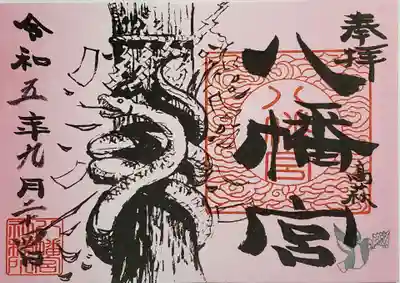 奉拝
八幡宮
高萩
令和五年九月二十四日